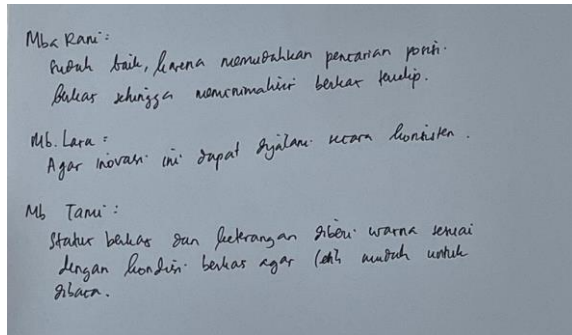 Mba Rani :
Sudah baik, karena memudahkan pencarian posisi
berkas sehingga meminimalisir berkas terselip.
Mb. Lara :
Agar inovasi ini dapat dijalani secara konsisten.
Mb Tami :
Status berkas dan keterangan diberi warna sesuai
dengan kondisi berkas agar lebih mudah untuk
dibaca.